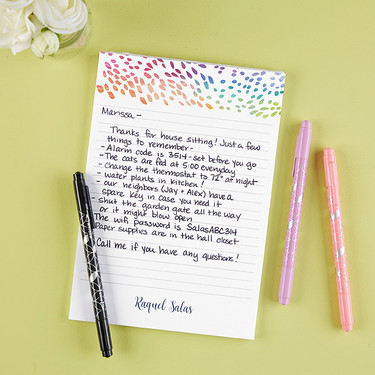 Marissa -
Thanks for house sitting! Just a few
things to remember-
- Alarm code is 3514 - set before you go
- The cats are fed at 5:00 everyday
- change the thermostat to 72° at night
- water plants in kitchen!
- our neighbors (Jay + Alex) have a
spare key in case you need it
- shut the garden gate all the way
or it might blow open
The wifi password is SalasABC314
Paper supplies are in the hall closet
Call me if you have any questions!
Raquel Salas